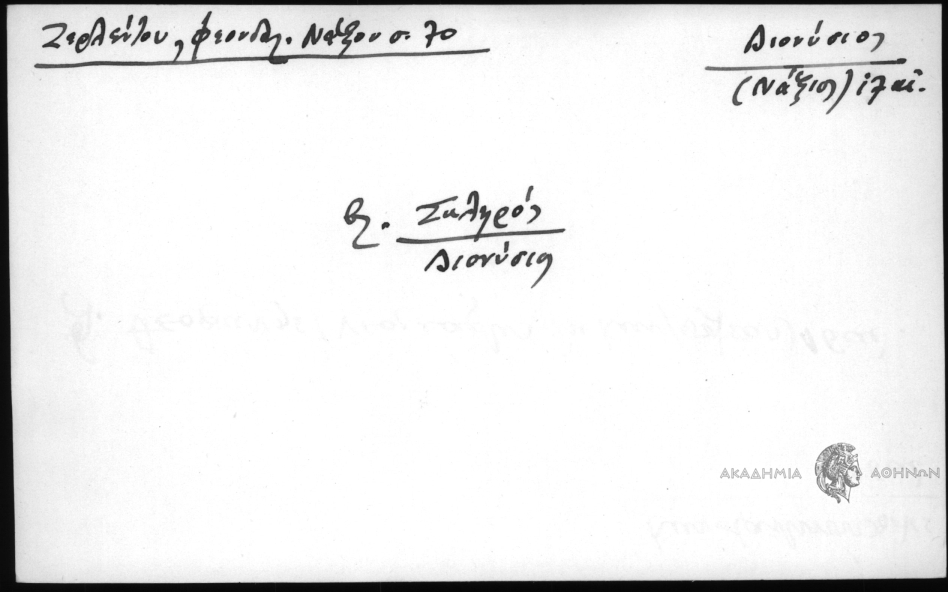 Ζερλέντου, φεουδαλ. Νάξου σ. 70
Διονύσιος
(Νάξιος) ιζ αἰ.
βλ. Σκληρός
Διονύσιος
ΑΚΑΔΗΜΙΑ ΑΘΗΝΩΝ